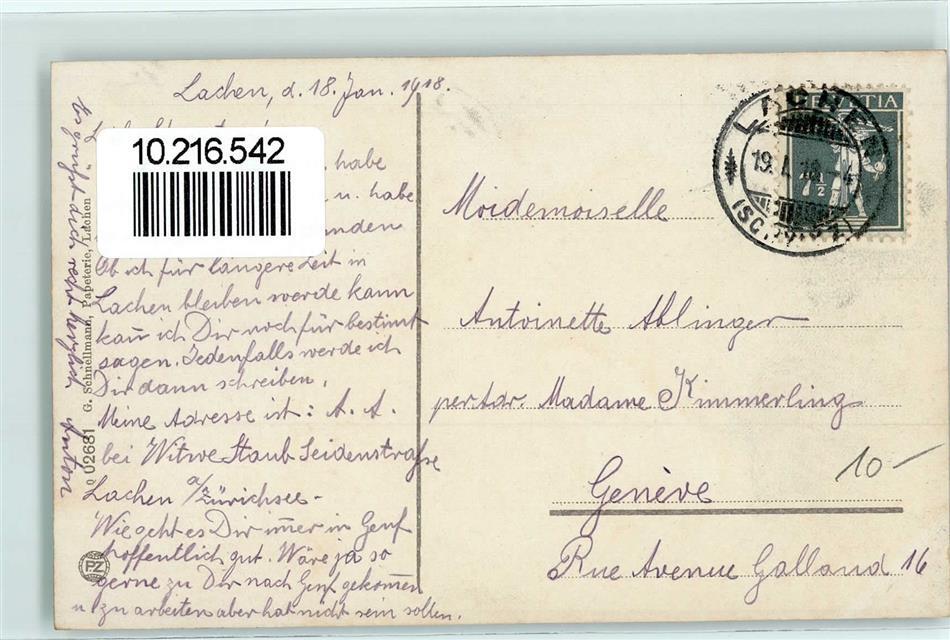 Lachen, d. 18. Jan. 1918.
10.216.542
habe
u. habe
Ob ich für längere Zeit in
Lachen bleiben werde kann
kañ ich Dir noch für bestimt
sagen. Jedenfalls werde ich
Dir dann schreiben.
Meine Adresse ist: A. A.
bei Witwe Staub Seidenstraße
Lachen a/Zürichsee -
Wie geht es Dir im̃er in Genf
hoffentlich gut. Wäre ja so
gerne zu Dir nach Genf gekom̃en
u. zu arbeiten aber hat nicht sein sollen.
Es grüßt dich recht herzlich Anton
02681 G. Schnellmann, Papeterie, Lachen
PZ
HELVETIA
7½
LACHEN
19. I. 18. -4
(SCHWYZ)
Moidemoiselle
Antoinette Ablinger
per Adr. Madame Kimmerling
Genève
Rue Avenue Galland 16
10 -